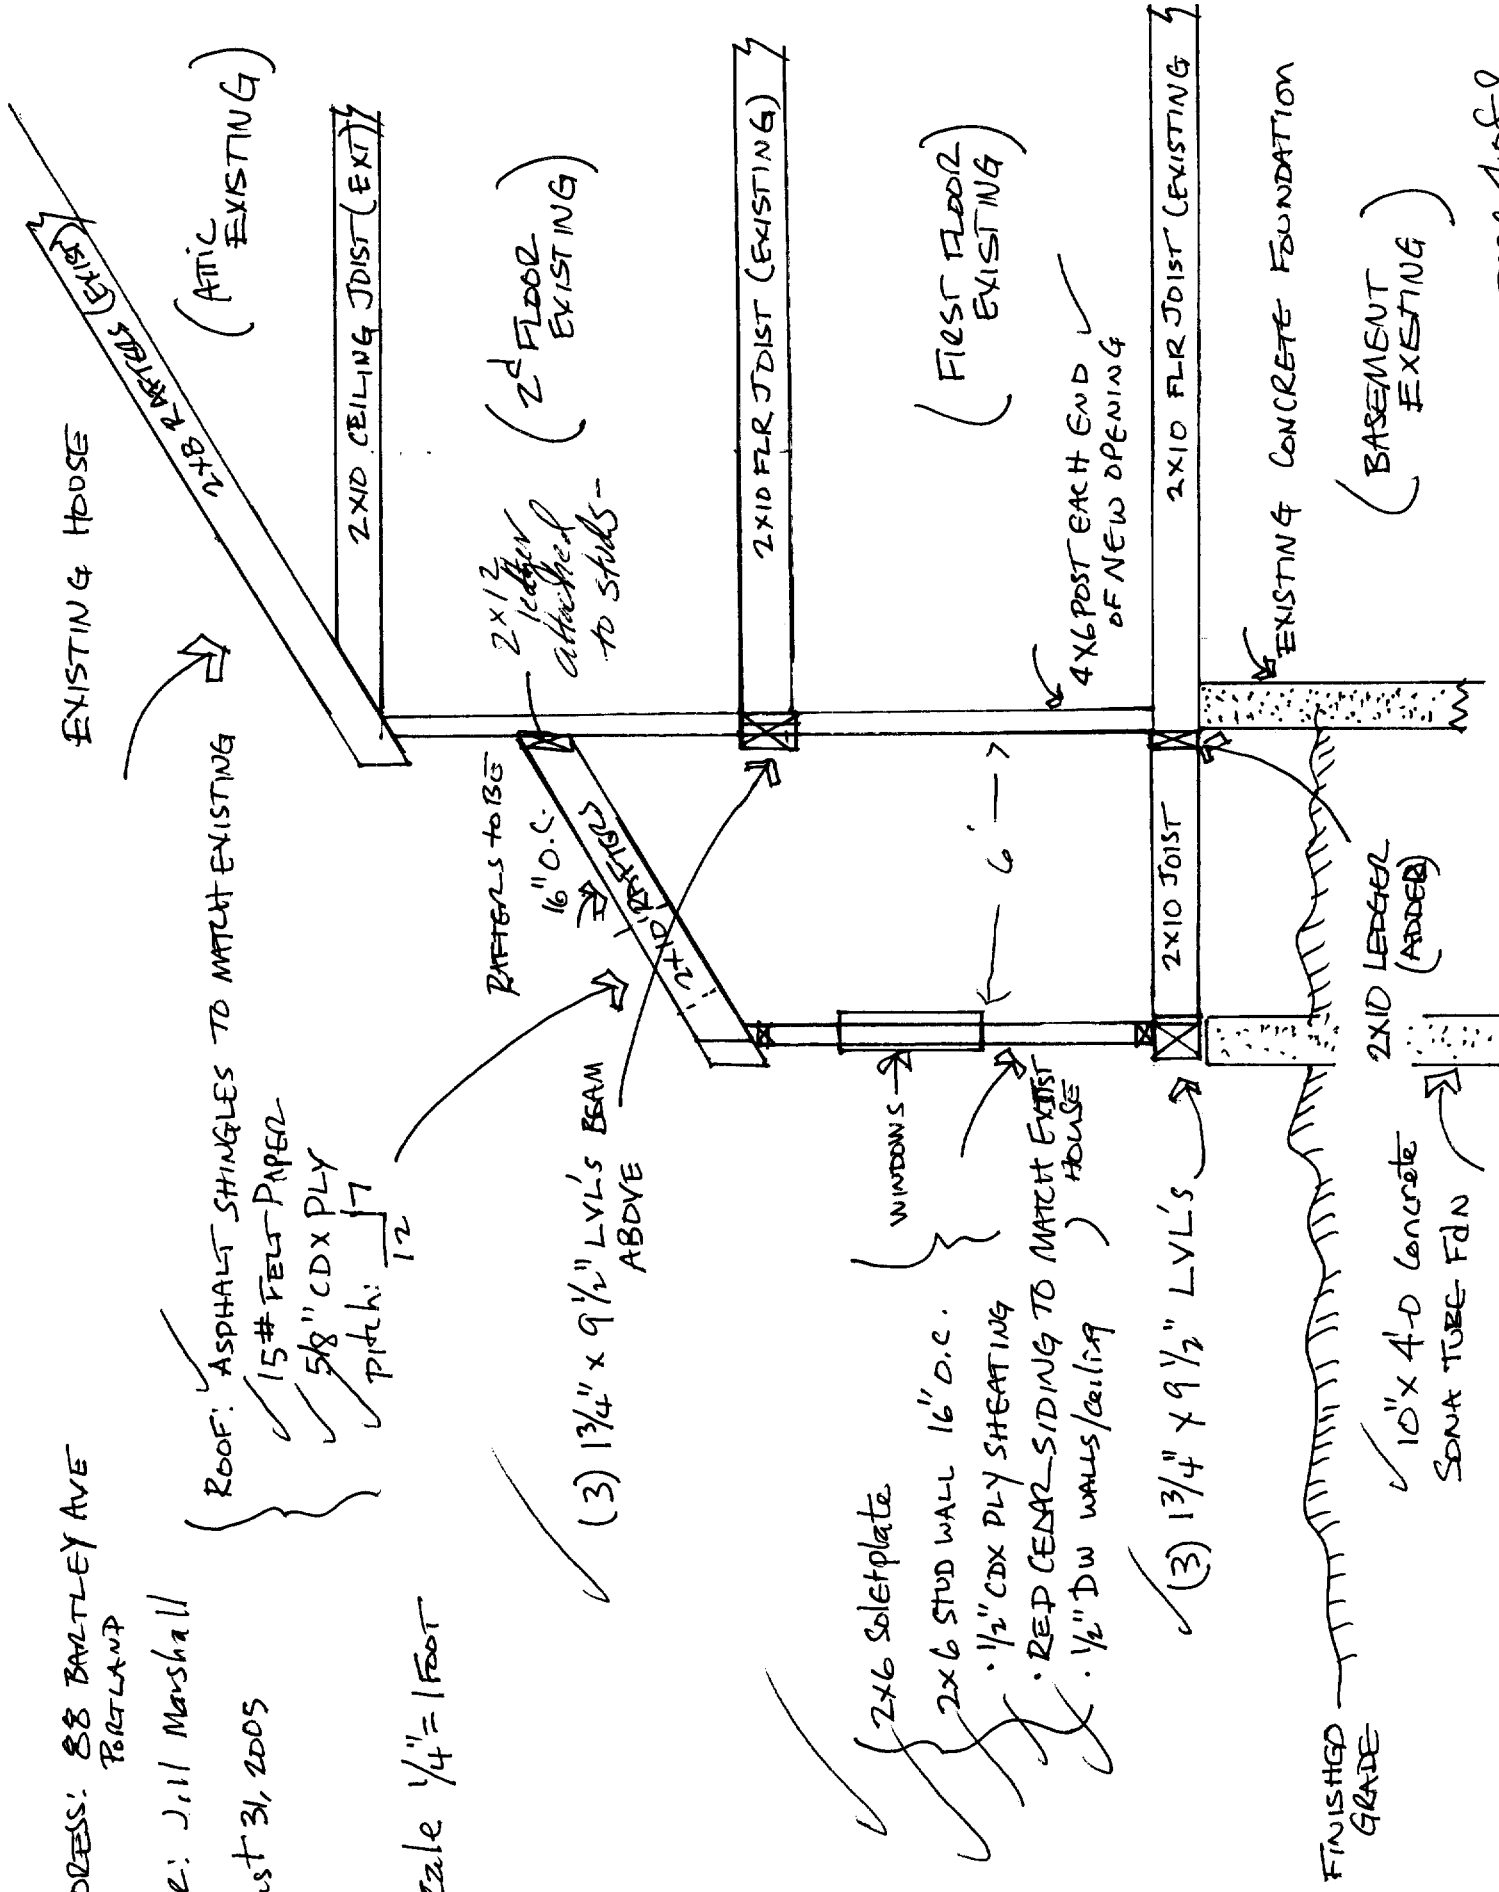 DRESS: 88 BARTLEY AVE
PORTLAND
R: Jill Marshall
ust 31, 2005
cale 1/4" = 1 FOOT
EXISTING HOUSE
ROOF: ASPHALT SHINGLES TO MATCH EXISTING
15# FELT PAPER
5/8" CDX PLY
pitch: 7
12
2x8 RAFTERS (EXIST)
(ATTIC
EXISTING)
2X10 CEILING JOIST (EXT)
RAFTERS to BE
16" O.C.
2x10 RAFTERS
2x12
ledger
attached
to studs-
(2d FLOOR
EXISTING)
(3) 1 3/4" x 9 1/2" LVL'S BEAM
ABOVE
2X10 FLR JOIST (EXISTING)
(FIRST FLOOR
EXISTING)
4X6 POST EACH END
OF NEW OPENING
6'
WINDOWS
2x6 Soletplate
2x6 STUD WALL 16" O.C.
· 1/2" CDX PLY SHEATING
· RED CEDAR SIDING TO MATCH EXIST
HOUSE
· 1/2" DW WALLS/ceiling
(3) 1 3/4" x 9 1/2" LVL'S
2X10 JOIST
2X10 FLR JOIST (EXISTING
EXISTING CONCRETE FOUNDATION
2X10 LEDGER
(ADDED)
(BASEMENT
EXISTING)
FINISHED
GRADE
10" x 4'-0 Concrete
SONA TUBE FdN